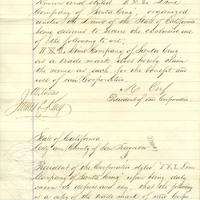 known and styled "I X L Lime
Company of Santa Cruz", organized
under the Laws of the State of California
being desirous to secure the exclusive use
of the following to wit,
"I X L Lime Company of Santa Cruz"
as a trade mark does hereby claim
the same as such for the benefit and
use of our Corporation.
Witness
President of our Corporation
State of California
City and County of San Francisco
President of the Corporation styled "I X L Lime
Company of Santa Cruz" upon being duly
sworn do depose and say that the following
is a copy of the trade mark of our Corpo